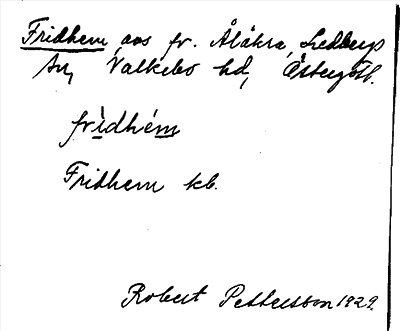 Fridhem avs fr. Ålåkra, Ledbergs
sn, Valkebo hd, Östergötl.
frìdhém
Fridhem kb.
Robert Pettersson 1929.